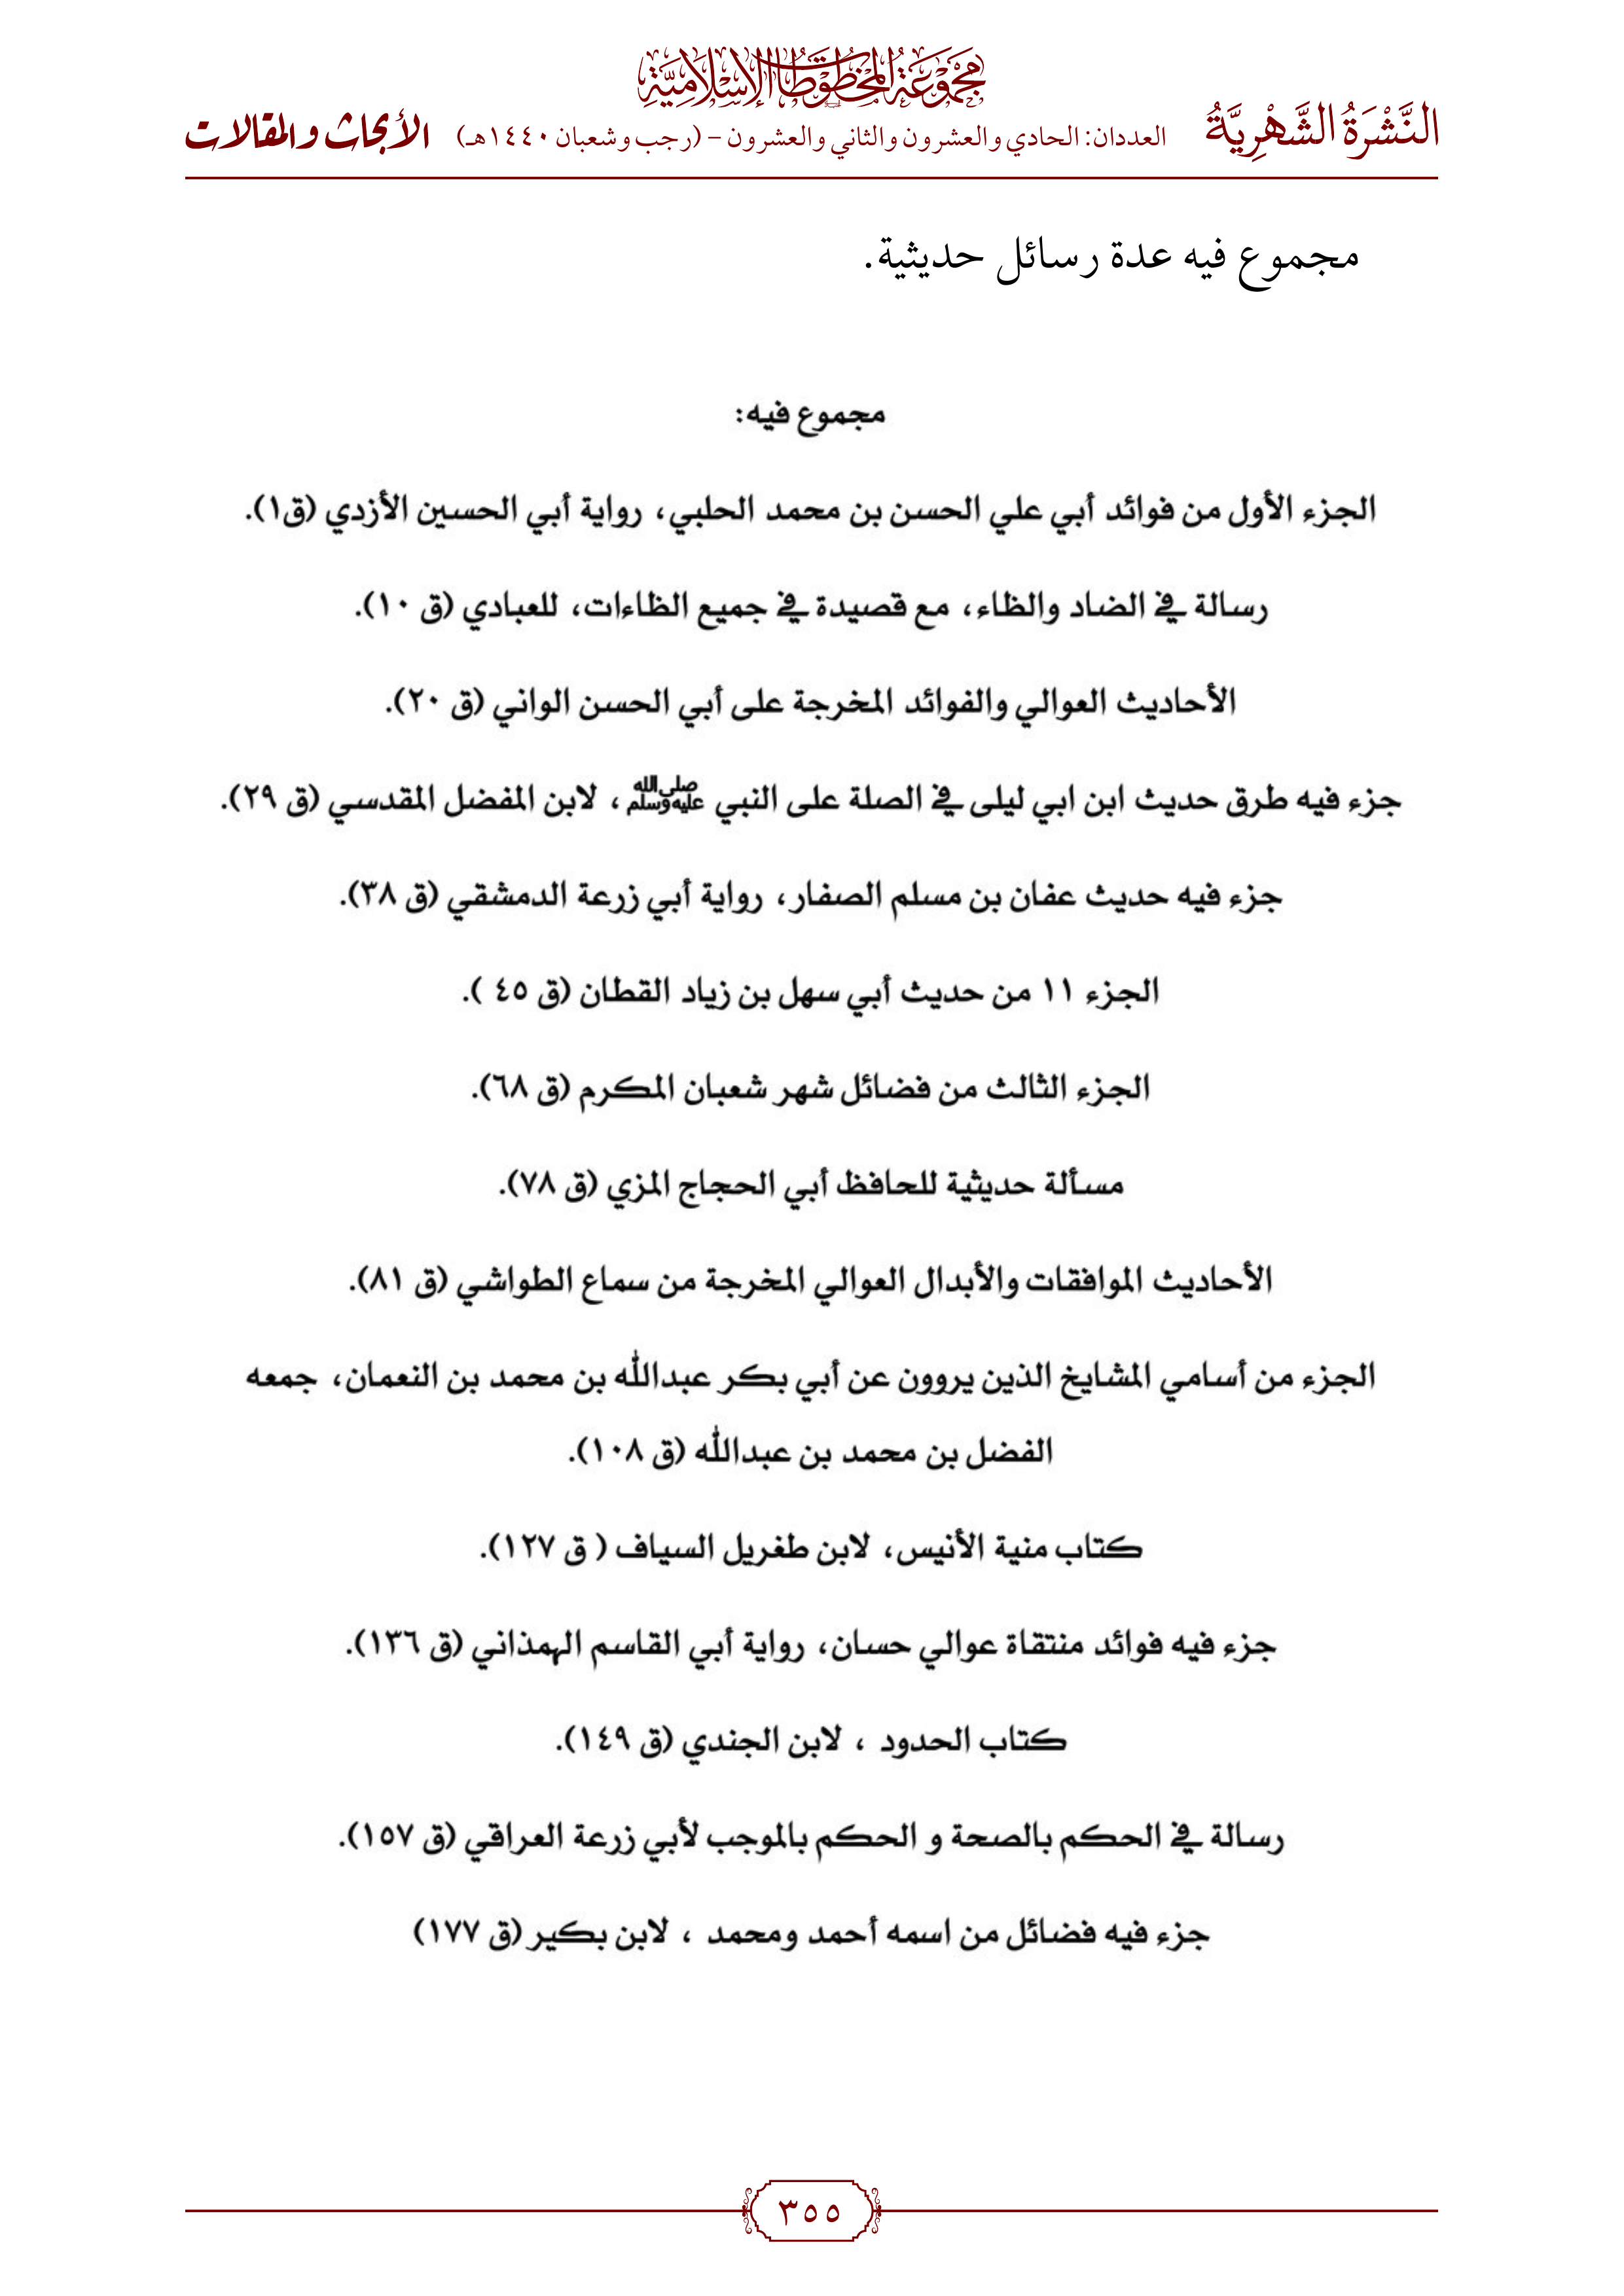 مَجْمُوْعَةُ المَخْطُوْطَاتِ الإِسْلَامِيَّةِ
النَّشْرَةُ الشَّهْرِيَّةُ العددان: الحادي والعشرون والثاني والعشرون – (رجب وشعبان ١٤٤٠هـ) الأبحاث والمقالات
مجموع فيه عدة رسائل حديثية.
مجموع فيه:
الجزء الأول من فوائد أبي علي الحسن بن محمد الحلبي، رواية أبي الحسين الأزدي (ق١).
رسالة في الضاد والظاء، مع قصيدة في جميع الظاءات، للعبادي (ق ١٠).
الأحاديث العوالي والفوائد المخرجة على أبي الحسن الواني (ق ٢٠).
جزء فيه طرق حديث ابن ابي ليلى في الصلة على النبي ﷺ، لابن المفضل المقدسي (ق ٢٩).
جزء فيه حديث عفان بن مسلم الصفار، رواية أبي زرعة الدمشقي (ق ٣٨).
الجزء ١١ من حديث أبي سهل بن زياد القطان (ق ٤٥ ).
الجزء الثالث من فضائل شهر شعبان المكرم (ق ٦٨).
مسألة حديثية للحافظ أبي الحجاج المزي (ق ٧٨).
الأحاديث الموافقات والأبدال العوالي المخرجة من سماع الطواشي (ق ٨١).
الجزء من أسامي المشايخ الذين يروون عن أبي بكر عبدالله بن محمد بن النعمان، جمعه
الفضل بن محمد بن عبدالله (ق ١٠٨).
كتاب منية الأنيس، لابن طغريل السياف ( ق ١٢٧).
جزء فيه فوائد منتقاة عوالي حسان، رواية أبي القاسم الهمذاني (ق ١٣٦).
كتاب الحدود ، لابن الجندي (ق ١٤٩).
رسالة في الحكم بالصحة و الحكم بالموجب لأبي زرعة العراقي (ق ١٥٧).
جزء فيه فضائل من اسمه أحمد ومحمد ، لابن بكير (ق ١٧٧)
٣٥٥